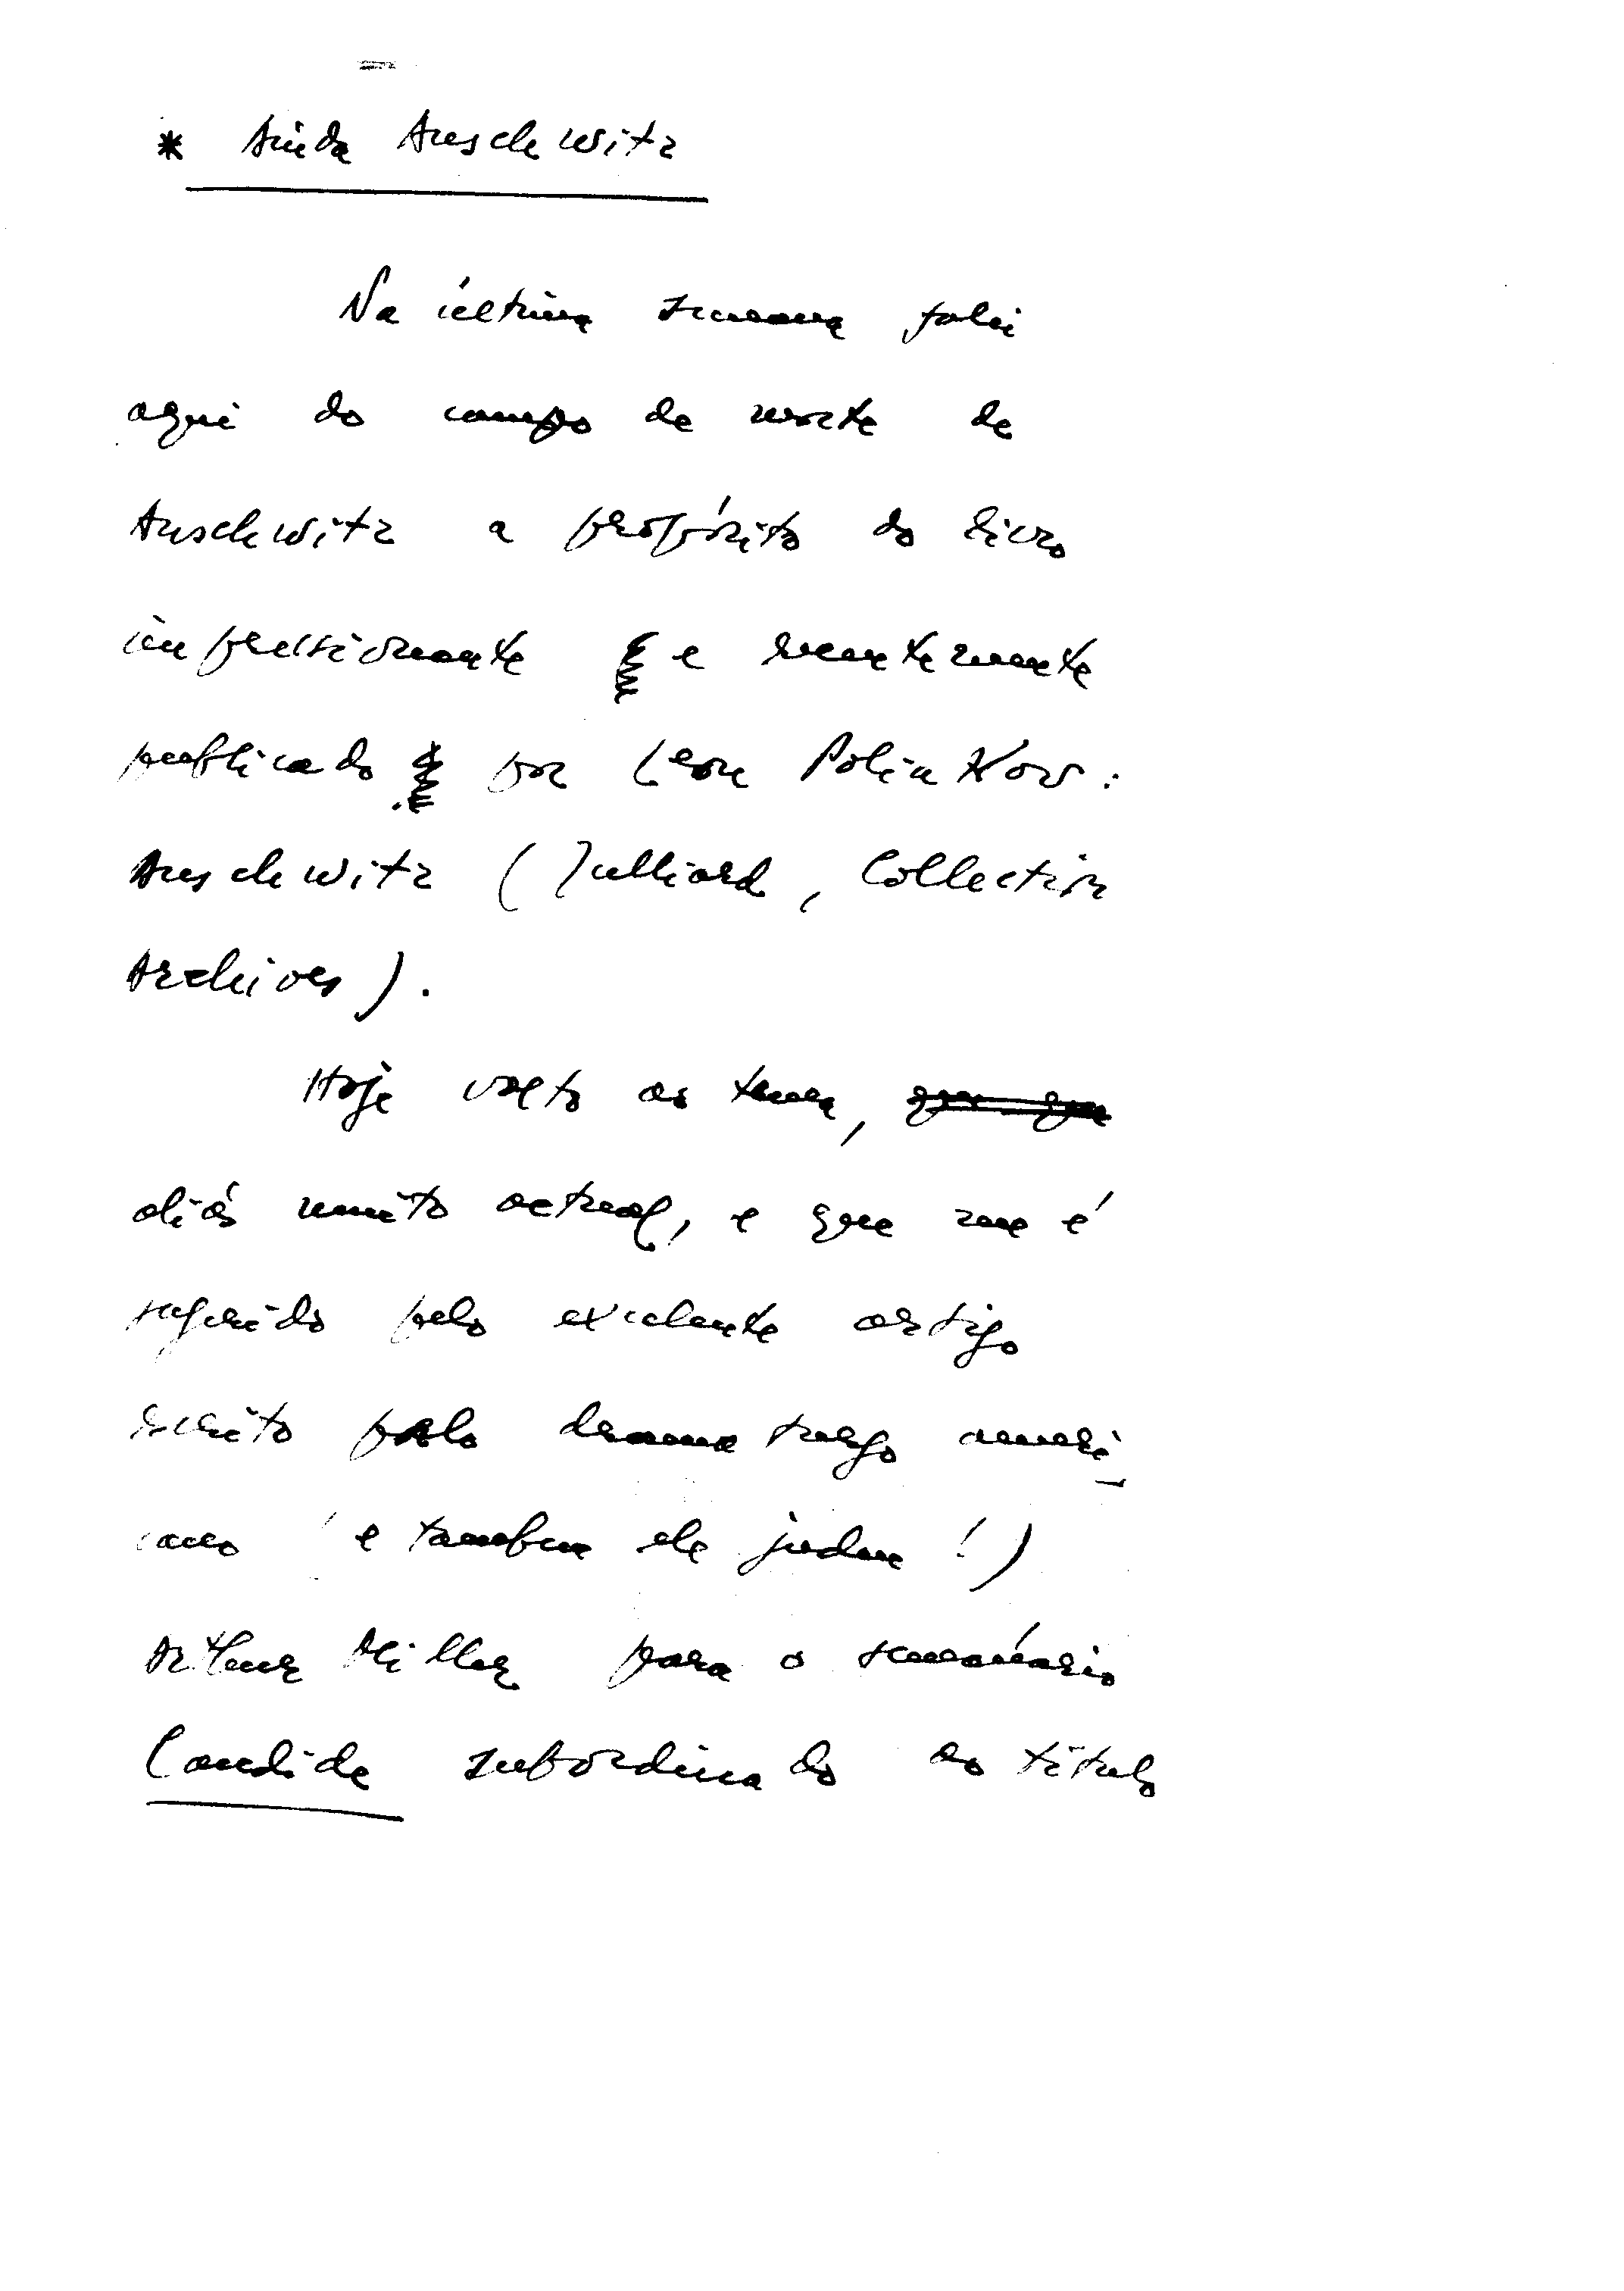 * Ainda Auschwitz
Na última semana falei
aqui do campo de morte de
Auschwitz a propósito do livro
impressionante e recentemente
publicado por Leon Poliakov :
Auschwitz ( Julliard , Collection
Archives ) .
Hoje volto ao tema , que que
aliás muito actual , e que me é
sugerido pelo excelente artigo
escrito pelo dramaturgo ameri-
cano ( e tambem ele judeu ! )
Arthur Miller para o semanário
Candide subordinado ao titulo